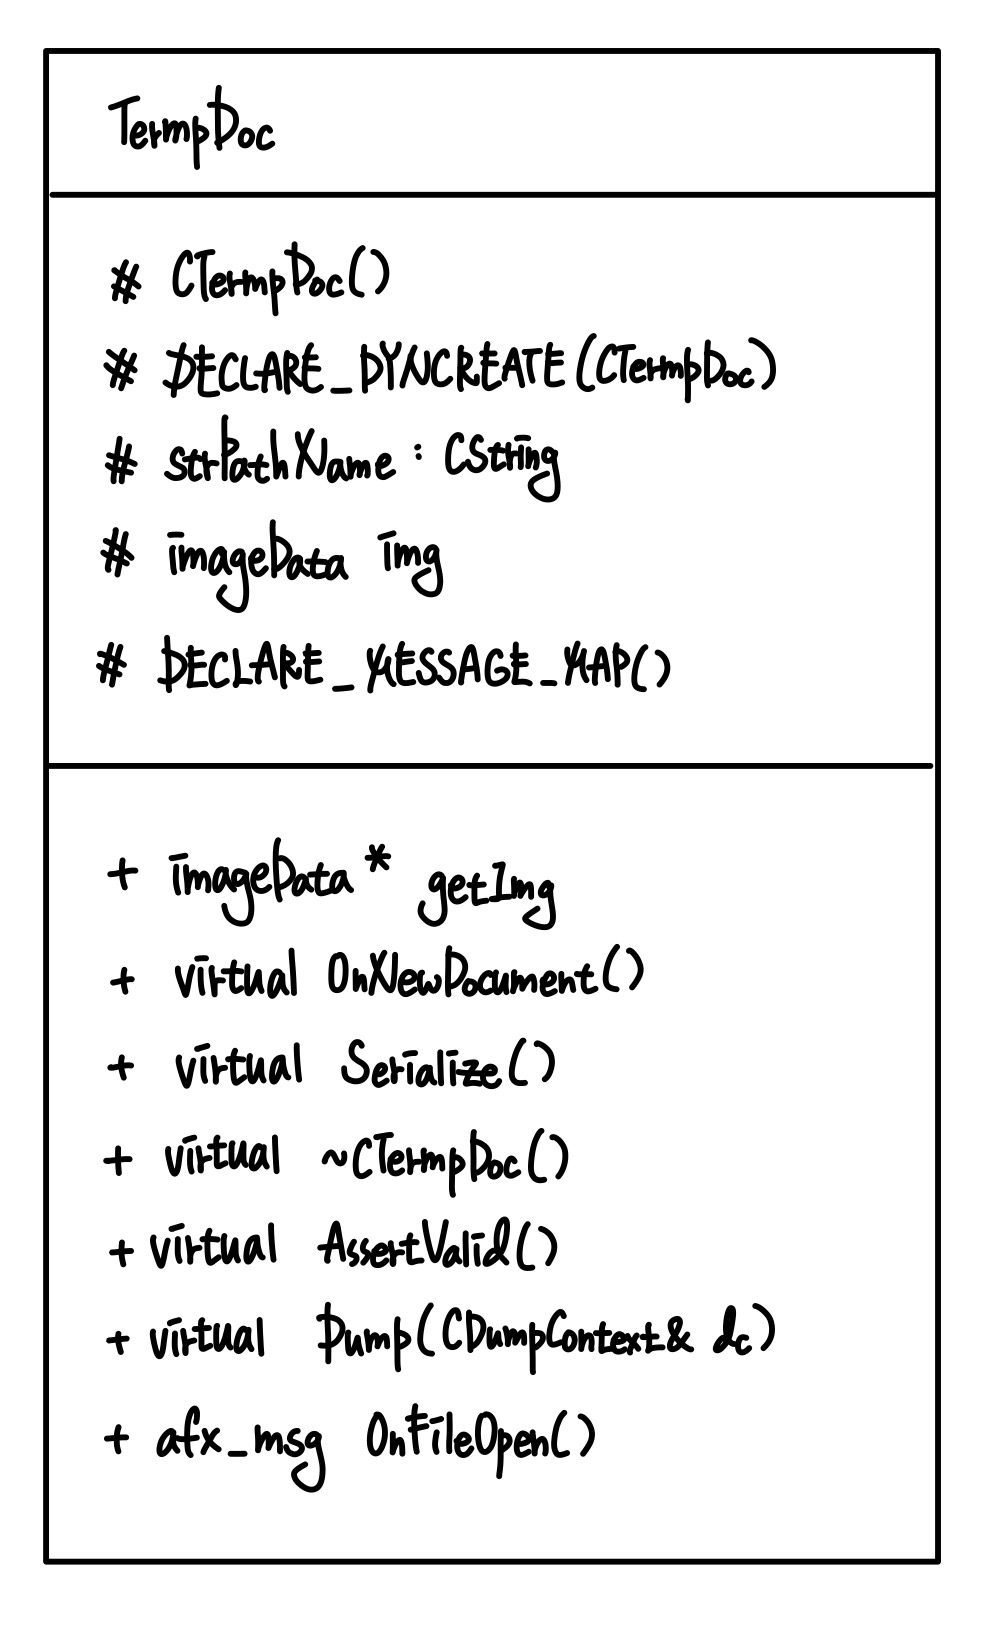 TermpDoc
# CTermpDoc()
# DECLARE_DYNCREATE(CTermpDoc)
# strPathName : CString
# imageData img
# DECLARE_MESSAGE_MAP()
+ imageData* getImg
+ virtual OnNewDocument()
+ virtual Serialize()
+ virtual ~CTermpDoc()
+ virtual AssertValid()
+ virtual Dump(CDumpContext& dc)
+ afx_msg OnFileOpen()